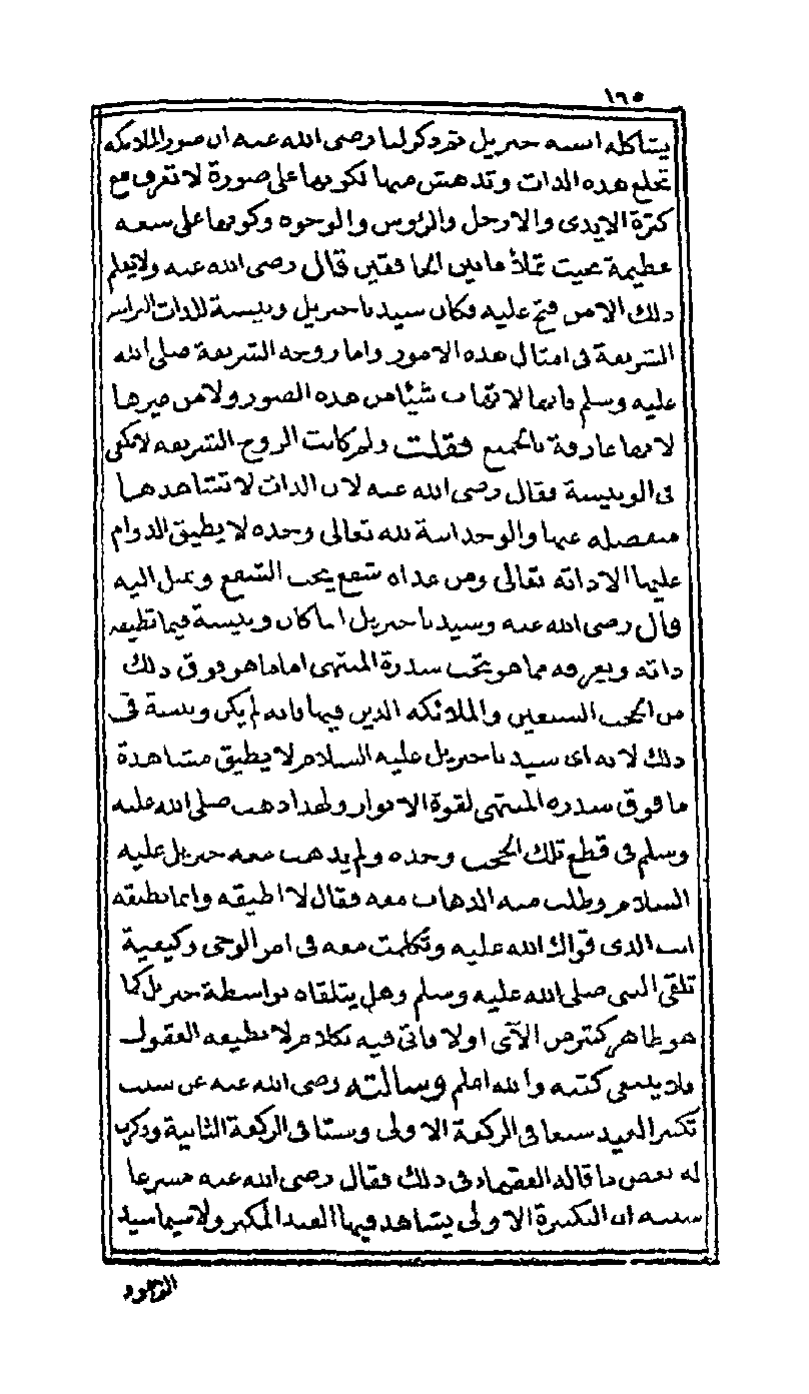 ١٦٥
يشاكله اسمه جبريل ثم ذكر لنا رضى الله عنه ان صور الملائكة
تخلع هذه الذات وتدهش منها لكونها على صورة لا تعرف مع
كثرة الايدى والارجل والرؤس والوجوه وكونها على سعة
عظيمة بحيث تملأ ما بين الخافقين قال رضى الله عنه ولا يعلم
ذلك الا من فتح عليه فكان سيدنا جبريل ونيسة للذات الترابية
الشريفة فى امثال هذه الامور واما روحه الشريفة صلى الله
عليه وسلم فانها لا تهاب شيئا من هذه الصور ولا من غيرها
لانها عارفة بالجميع فقلت ولم كانت الروح الشريفة لا تكفى
فى الونيسة فقال رضى الله عنه لان الذات لا تشاهدها
منفصلة عنها والوحدانية لله تعالى وحده لا يطيق الدوام
عليها الا ذاته تعالى ومن عداه شفع يحب الشفع ويميل اليه
قال رضى الله عنه وسيدنا جبريل انما كان ونيسة فيما تطيقه
ذاته ويعرفه مما هو تحت سدرة المنتهى اما ما هو فوق ذلك
من الحجب السبعين والملائكة الذين فيها فانه لم يكن ونيسة فى
ذلك لانه اى سيدنا جبريل عليه السلام لا يطيق مشاهدة
ما فوق سدرة المنتهى لقوة الانوار ولهذا ذهب صلى الله عليه
وسلم فى قطع تلك الحجب وحده ولم يذهب معه جبريل عليه
السلام وطلب منه الذهاب معه فقال لا اطيقه وانما تطيقه
انت الذى قواك الله عليه وتكلمت معه فى امر الوحى وكيفية
تلقى النبى صلى الله عليه وسلم وهل يتلقاه بواسطة جبريل كما
هو ظاهر كثير من الآى اولا فاتى فيه بكلام لا تطيقه العقول
فلا ينبغى كتبه والله اعلم وسالته رضى الله عنه عن سبب
تكبير العيد سبعا فى الركعة الاولى وستا فى الركعة الثانية وذكرت
له بعض ما قاله الفقهاء فى ذلك فقال رضى الله عنه مسرعا
سببه ان التكبيرة الاولى يشاهد فيها العبد المكبر ولا سيما سيد
الوجود